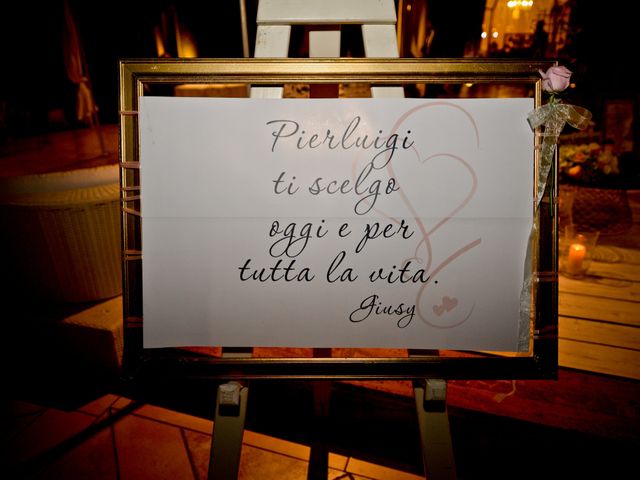 Pierluigi
ti scelgo
oggi e per
tutta la vita.
Giusy